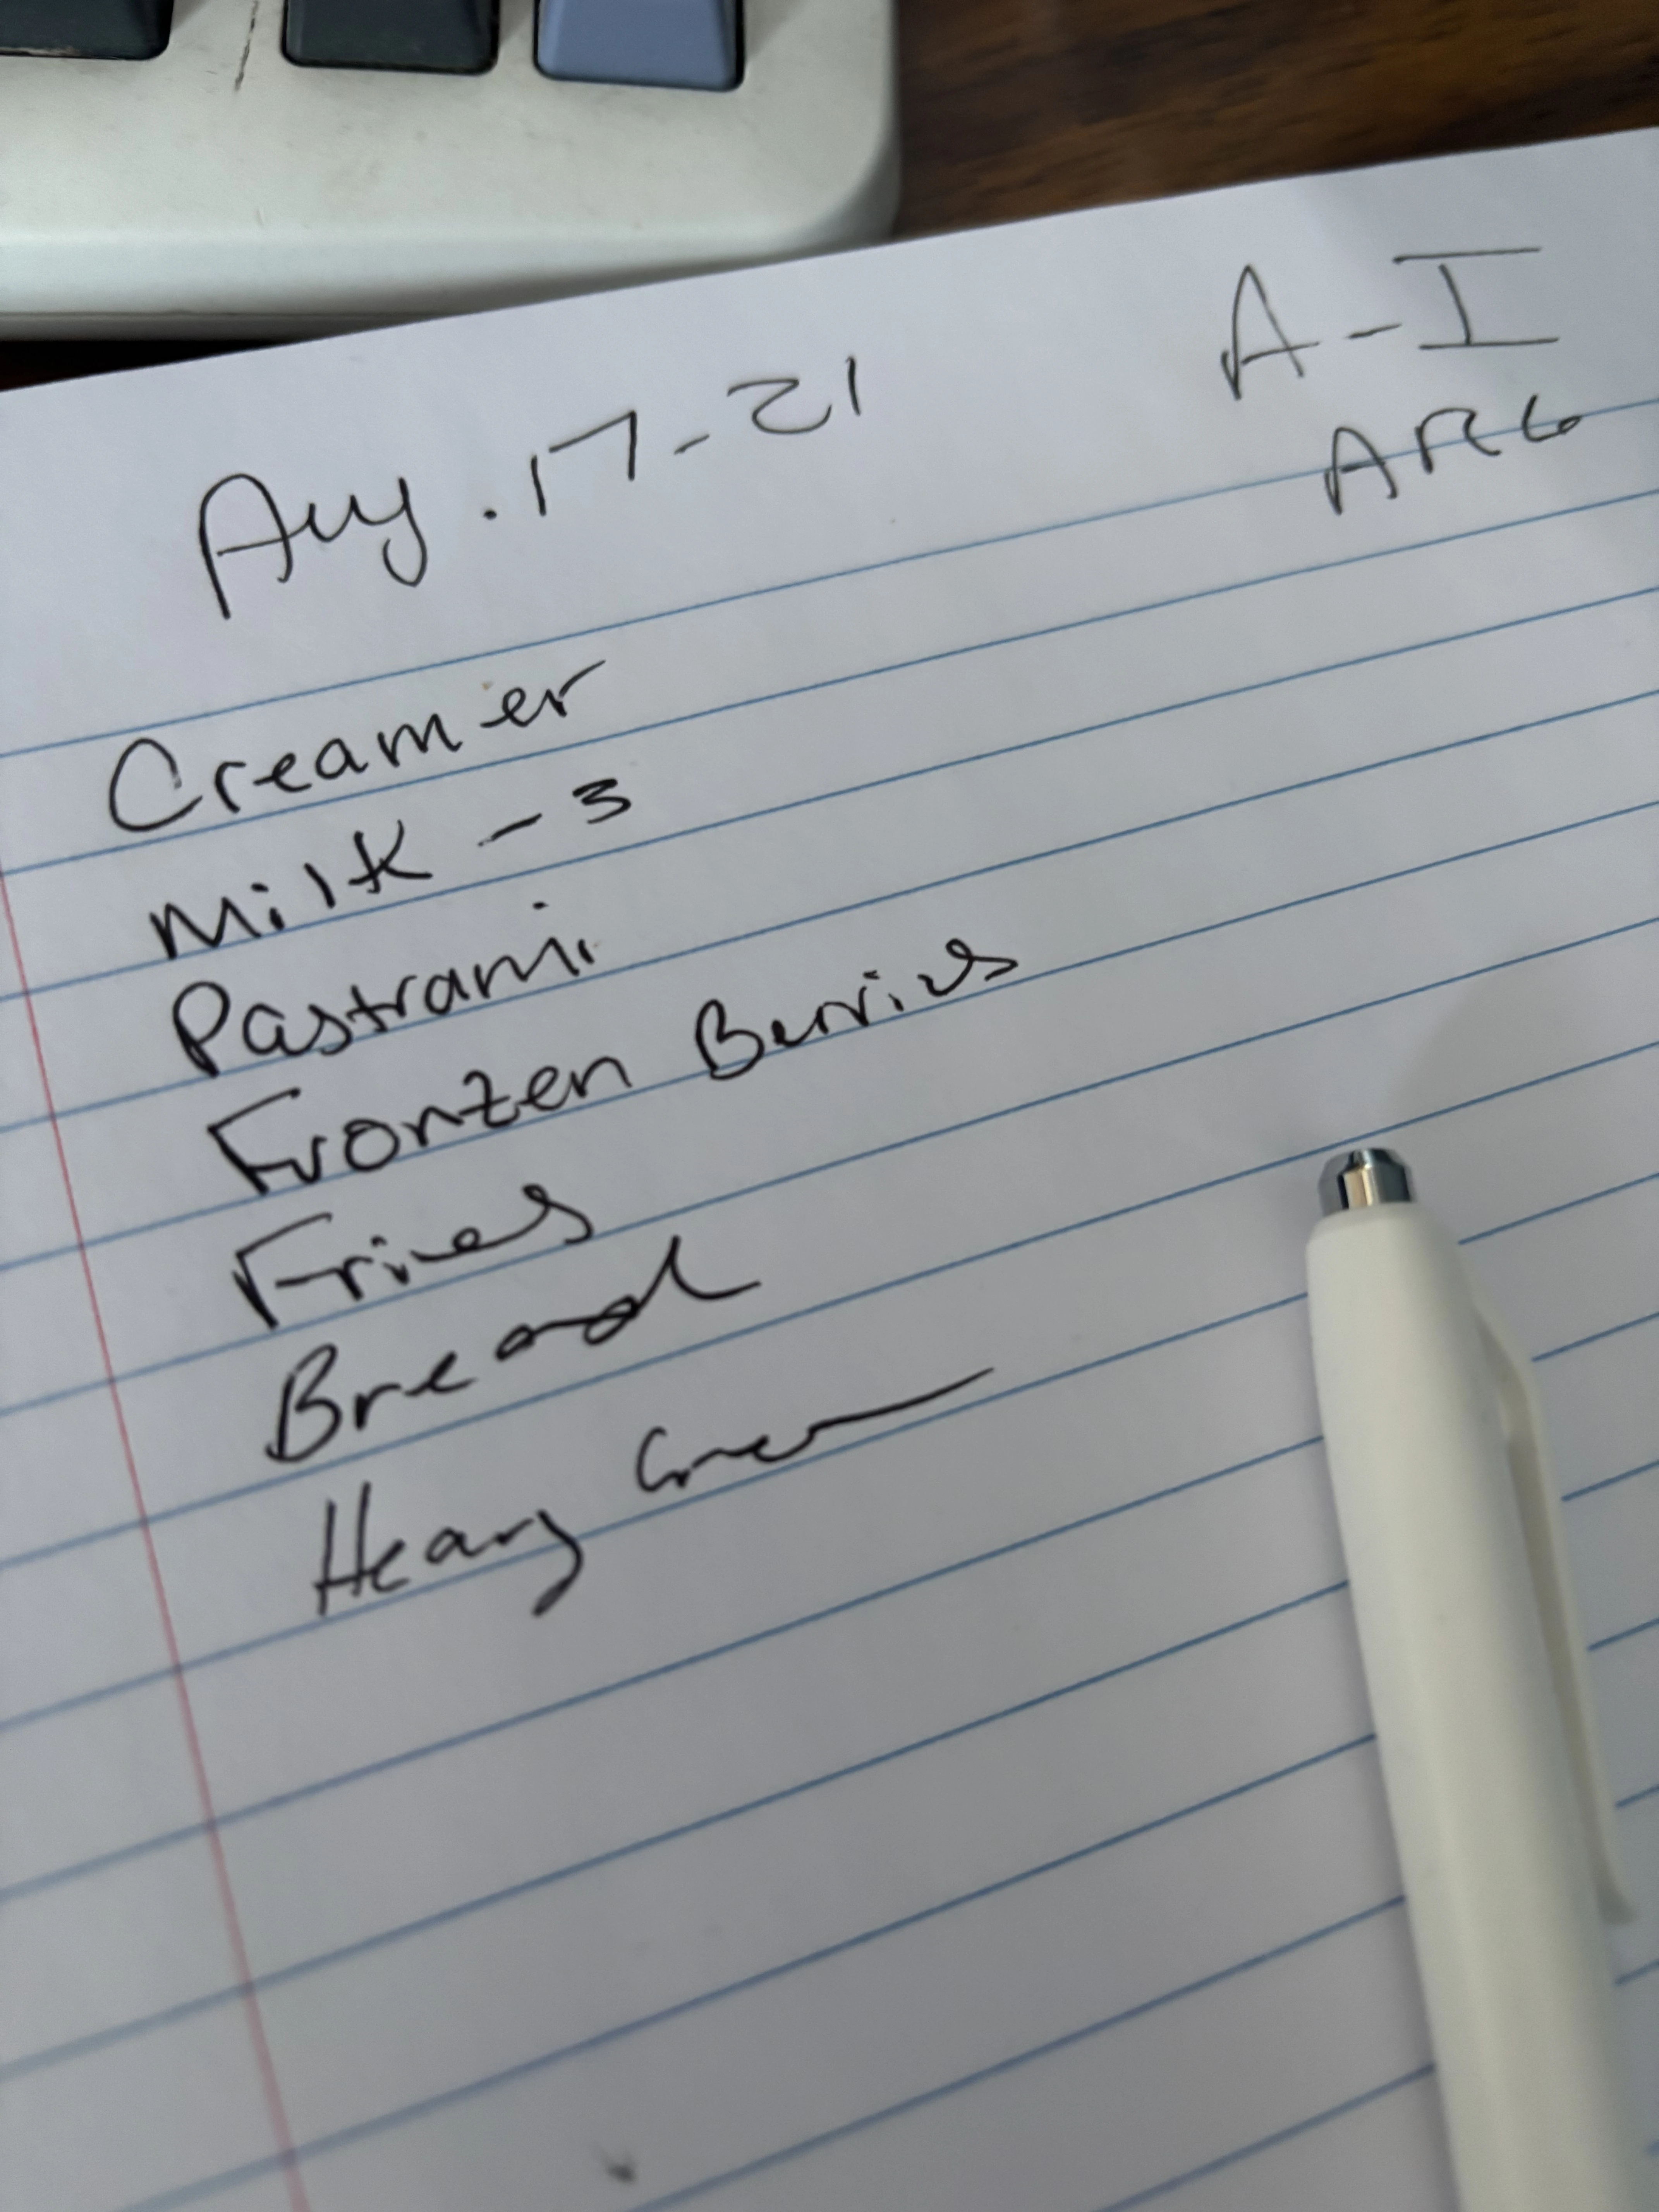 Aug. 17-21
A-I
ARG
Creamer
Milk - 3
Pastrami
Fronzen Berries
Fries
Bread
Heavy Cream